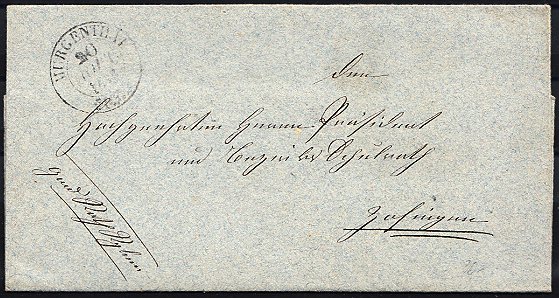 MURGENTHAL
20
Dem
Hochgeehrten Herrn Präsident
und Bezirks Schulrath
Zofingen